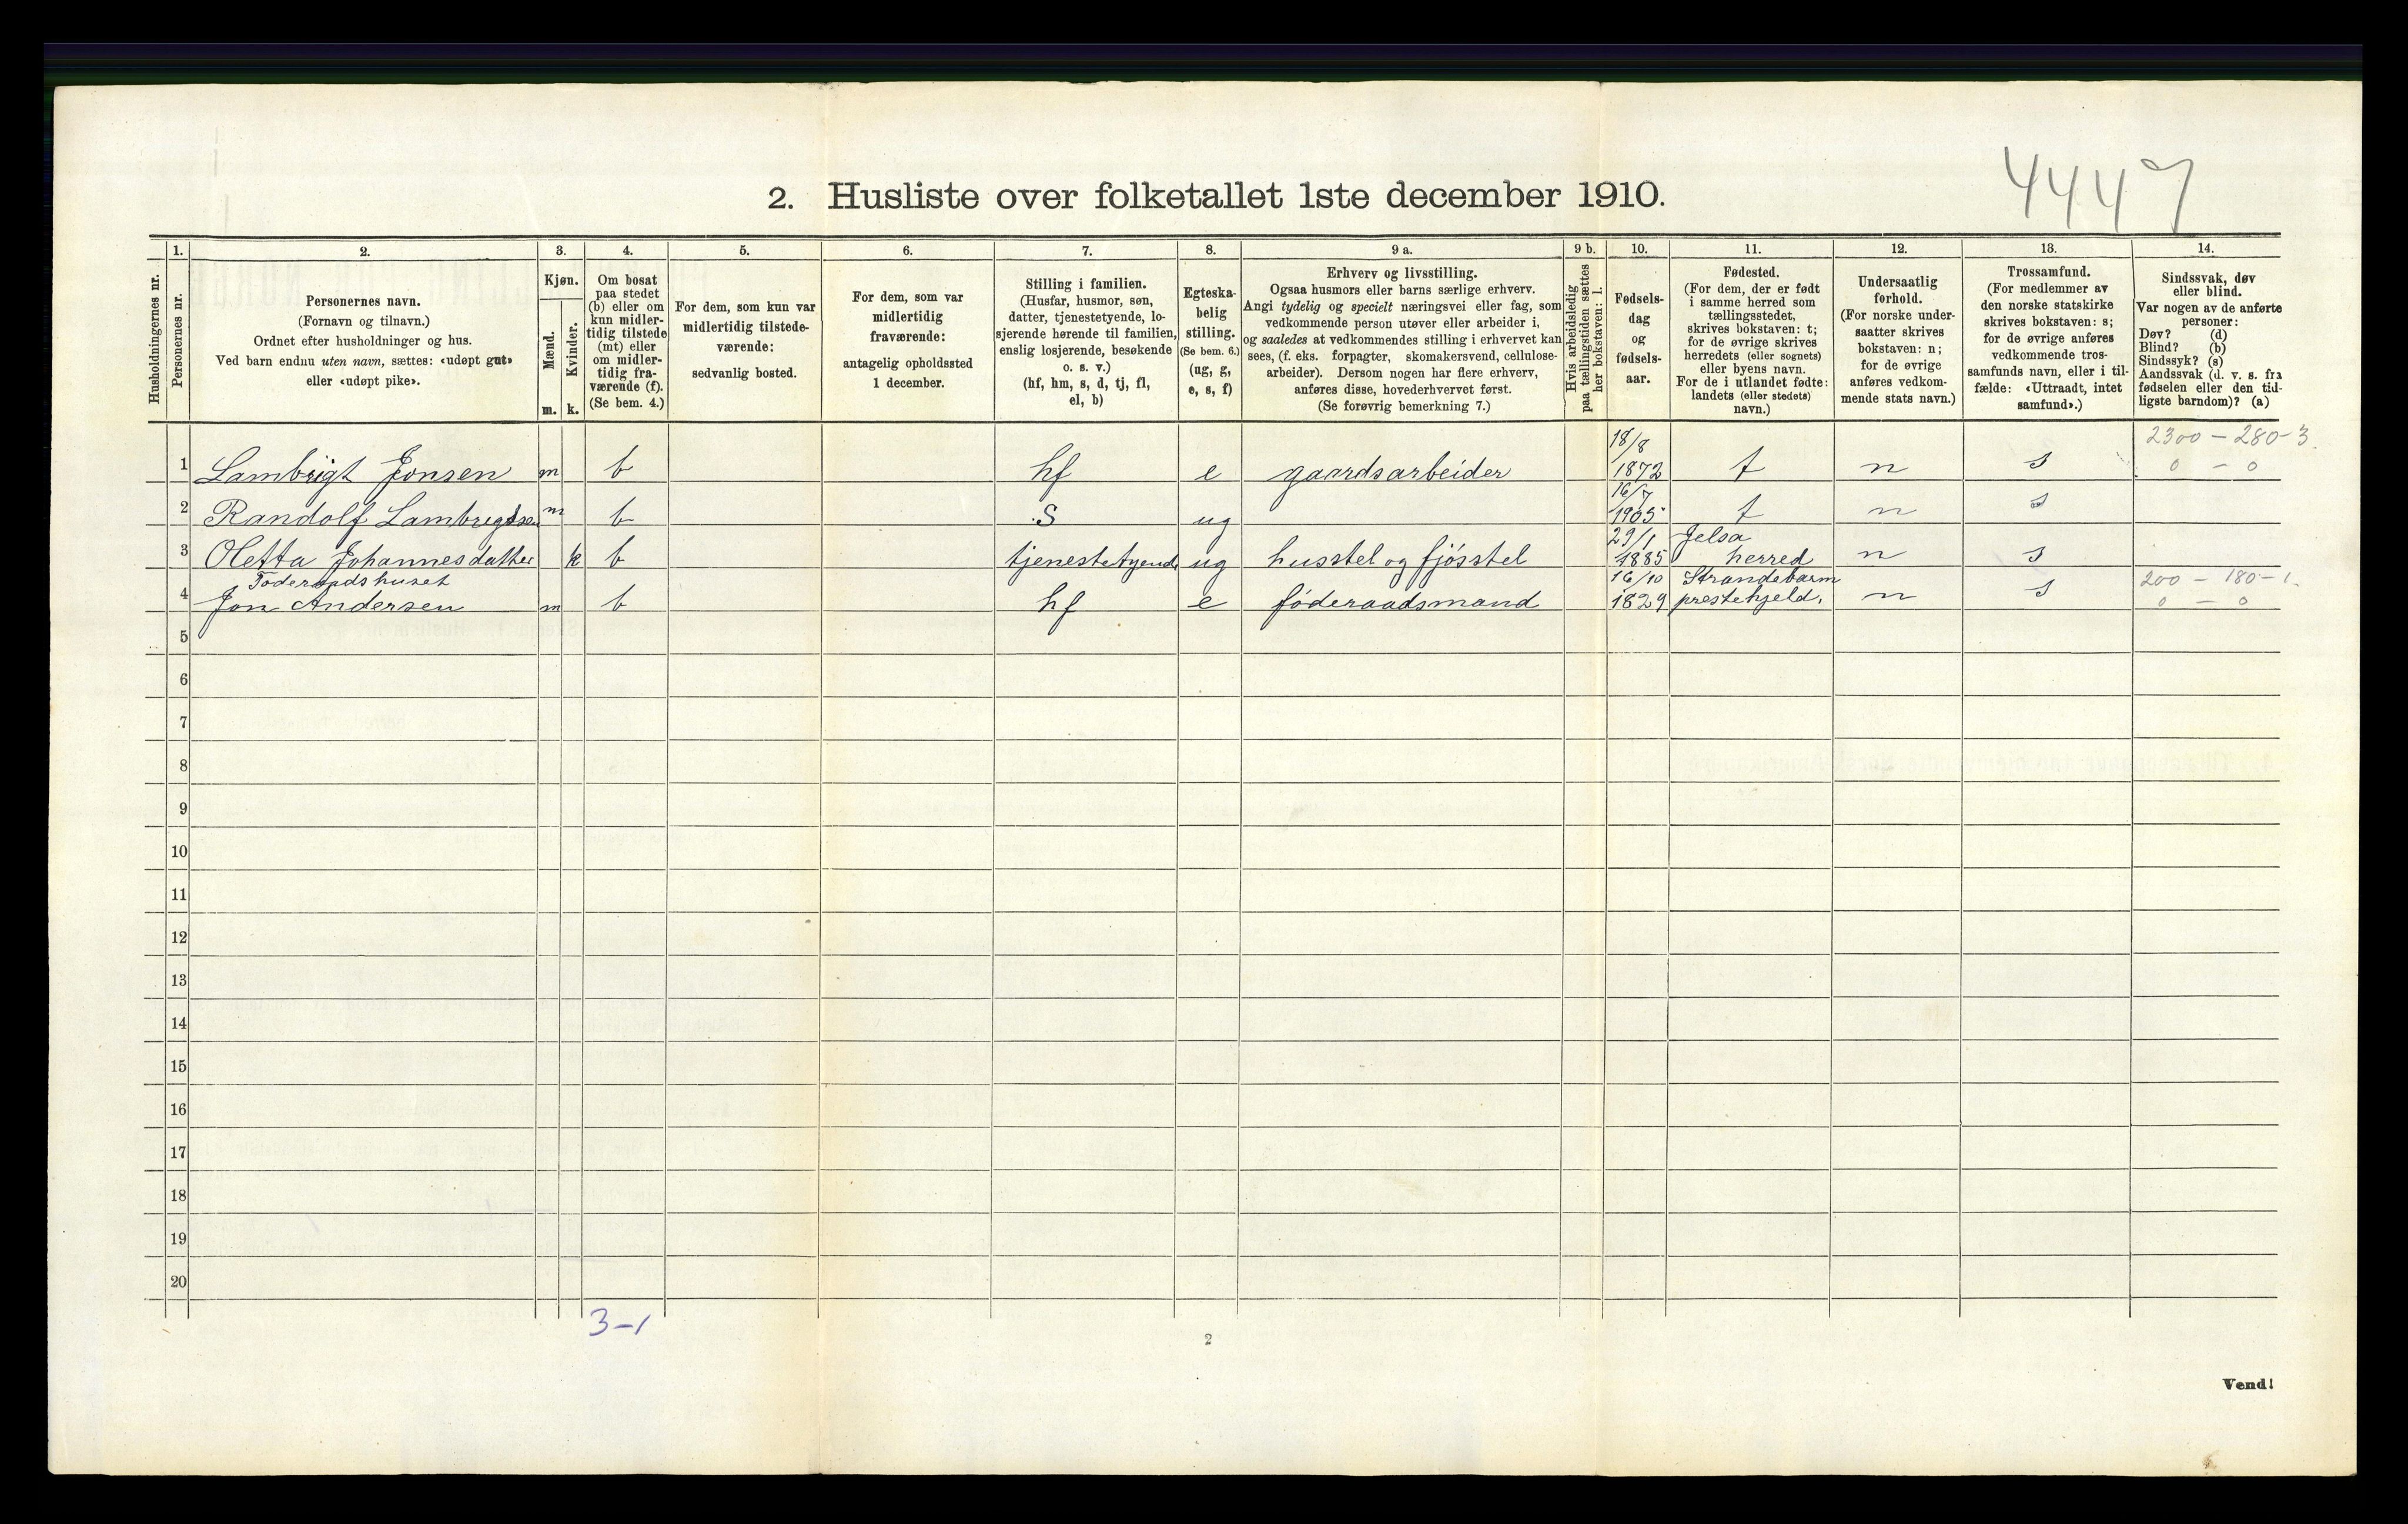 4447
2. Husliste over folketallet 1ste december 1910.
Husholdningernes nr.
1.
Personernes nr.
2.
Personernes navn.
(Fornavn og tilnavn.)
Ordnet efter husholdninger og hus.
Ved barn endnu uten navn, sættes: «udøpt gut»
eller «udøpt pike».
3.
Kjøn.
Mænd.
Kvinder.
m. k.
4.
Om bosat
paa stedet
(b) eller om
kun midler-
tidig tilstede
(mt) eller
om midler-
tidig fra-
værende (f).
(Se bem. 4.)
5.
For dem, som kun var
midlertidig tilstede-
værende:
sedvanlig bosted.
6.
For dem, som var
midlertidig
fraværende:
antagelig opholdssted
1 december.
7.
Stilling i familien.
(Husfar, husmor, søn,
datter, tjenestetyende, lo-
sjerende hørende til familien,
enslig losjerende, besøkende
o. s. v.)
(hf, hm, s, d, tj, fl,
el, b)
8.
Egteska-
belig
stilling.
(Se bem. 6.)
(ug, g,
e, s, f)
9 a.
Erhverv og livsstilling.
Ogsaa husmors eller barns særlige erhverv.
Angi tydelig og specielt næringsvei eller fag, som
vedkommende person utøver eller arbeider i,
og saaledes at vedkommendes stilling i erhvervet kan
sees, (f. eks. forpagter, skomakersvend, cellulose-
arbeider). Dersom nogen har flere erhverv,
anføres disse, hovederhvervet først.
(Se forøvrig bemerkning 7.)
9 b.
Hvis arbeidsledig
paa tællingstiden sættes
her bokstaven: l.
10.
Fødsels-
dag
og
fødsels-
aar.
11.
Fødested.
(For dem, der er født
i samme herred som
tællingsstedet,
skrives bokstaven: t;
for de øvrige skrives
herredets (eller sognets)
eller byens navn.
For de i utlandet fødte:
landets (eller stedets)
navn.)
12.
Undersaatlig
forhold.
(For norske under-
saatter skrives
bokstaven: n;
for de øvrige
anføres vedkom-
mende stats navn.)
13.
Trossamfund.
(For medlemmer av
den norske statskirke
skrives bokstaven: s;
for de øvrige anføres
vedkommende tros-
samfunds navn, eller i til-
fælde: «Uttraadt, intet
samfund».)
14.
Sindssvak, døv
eller blind.
Var nogen av de anførte
personer:
Døv? (d)
Blind? (b)
Sindssyk? (s)
Aandssvak (d. v. s. fra
fødselen eller den tid-
ligste barndom)? (a)
18/8 2300 - 280-3.
1 Lambrigt Jonsen m b hf e gaardsarbeider 1872 t n s 0 - 0
16/7
2 Randolf Lambrigtsen m b S ug 1905 t n s
29/1 Jelsa
3 Oletta Johannesdatter k b tjenestetyende ug husstel og fjösstel 1885 herred n s
Föderaadshuset 16/10 Strandebarm 200 - 180-1.
4 Jon Andersen m b hf e föderaadsmand 1829 prestehjeld. n s 0 - 0
5
6
7
8
9
10
11
12
13
14
15
16
17
18
19
20
3-1
2
Vend!